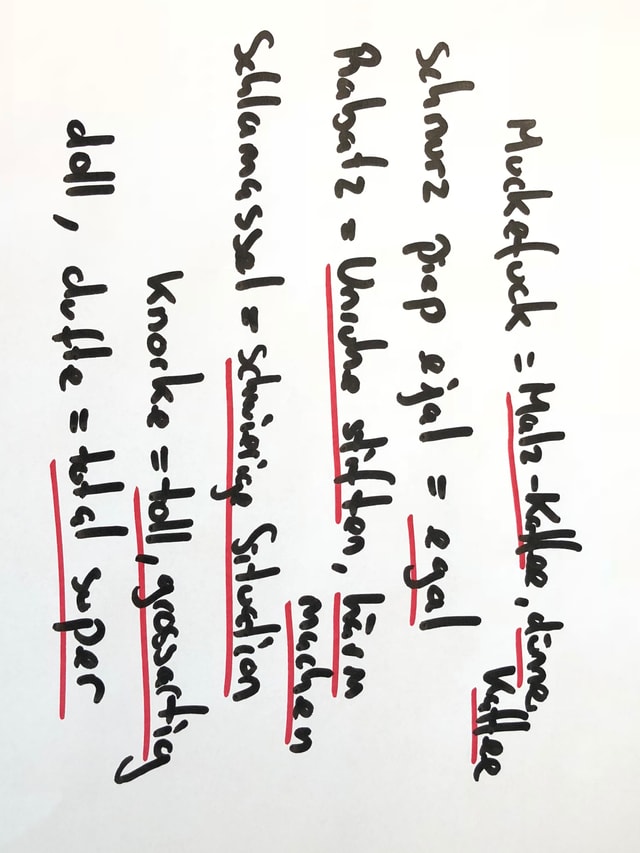 Muckefuck = Malz-Kaffee, dünne
Kaffee
Schnurz piep ejal = egal
Rabatz = Unruhe stiften, Lärm
machen
Schlamassel = schwierige Situation
Knorke = toll, grossartig
doll, dufte = total super